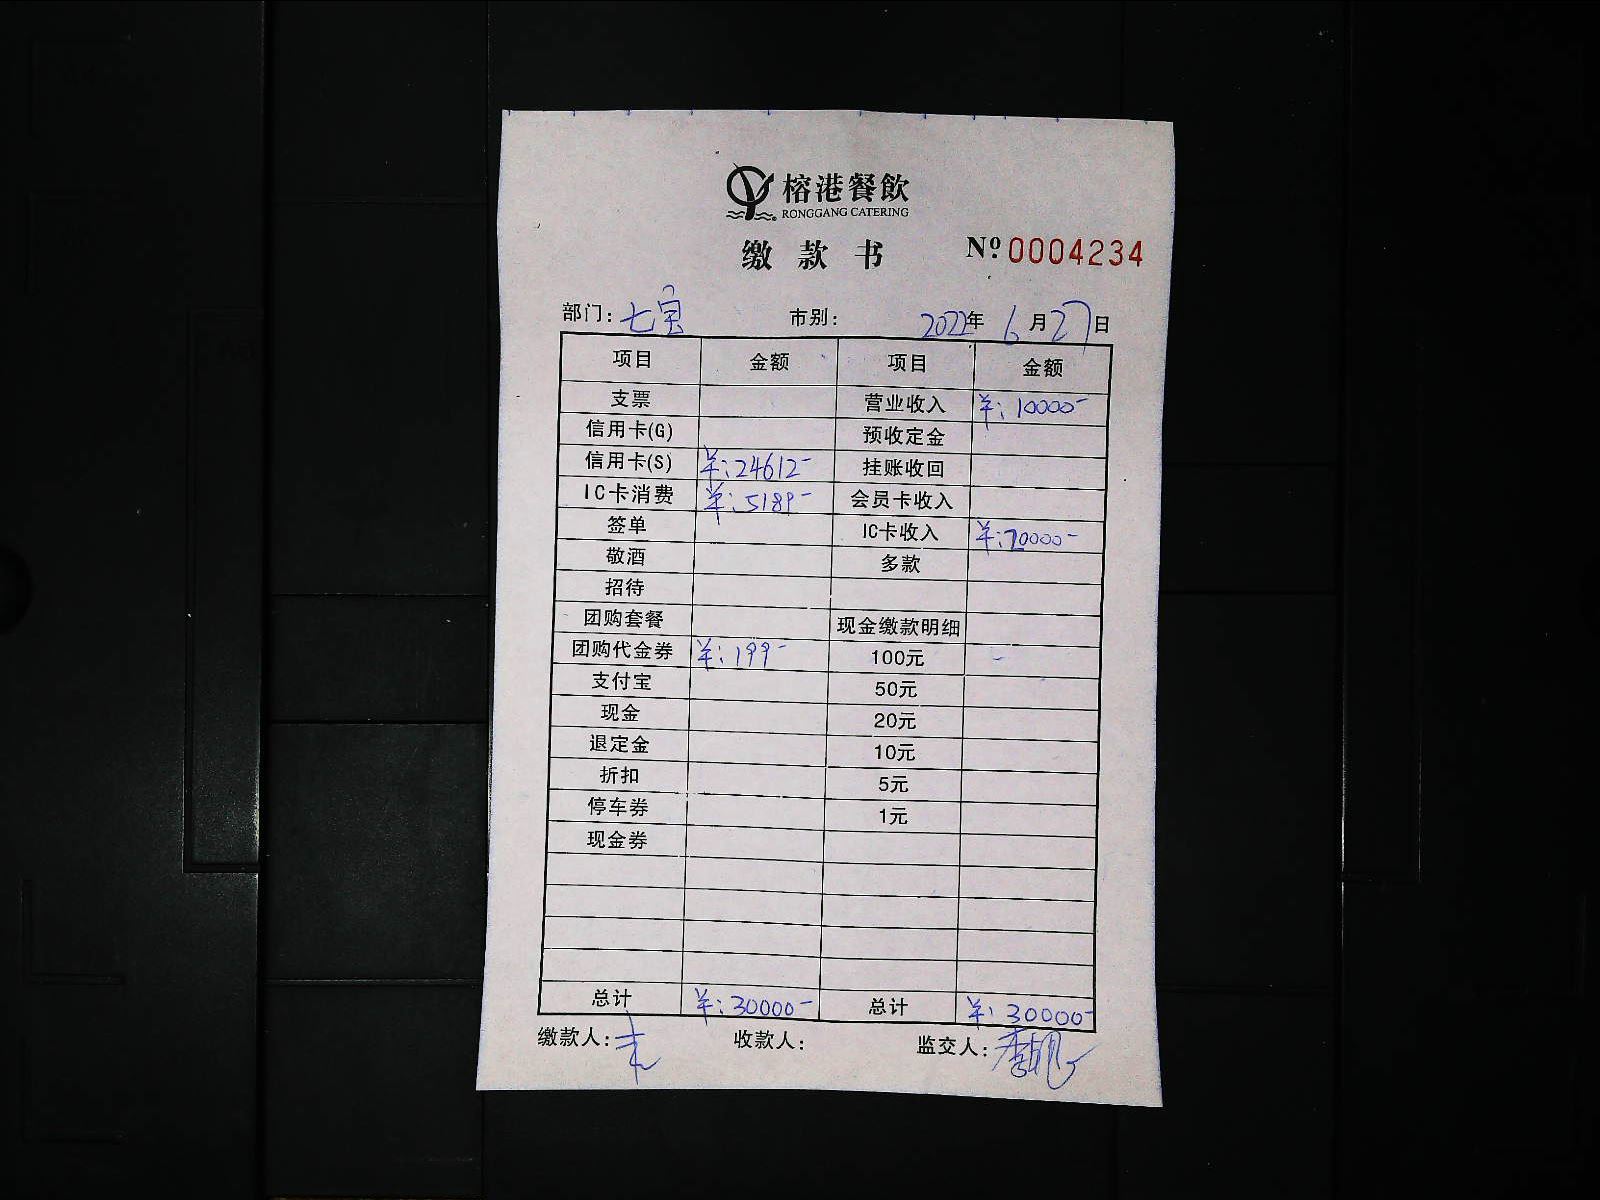 榕港餐飲
RONGGANG CATERING
缴款书 Nº.0004234
部门: 七宝 市别: 2022年 6月27日
项目 金额 项目 金额
支票 营业收入 ¥:10000-
信用卡(G) 预收定金
信用卡(S) ¥:24612- 挂账收回
IC卡消费 ¥:5189- 会员卡收入
签单 IC卡收入 ¥:20000-
敬酒 多款
招待
团购套餐 现金缴款明细
团购代金券 ¥:199- 100元 -
支付宝 50元
现金 20元
退定金 10元
折扣 5元
停车券 1元
现金券
总计 ¥:30000- 总计 ¥:30000-
缴款人: 收款人: 监交人: